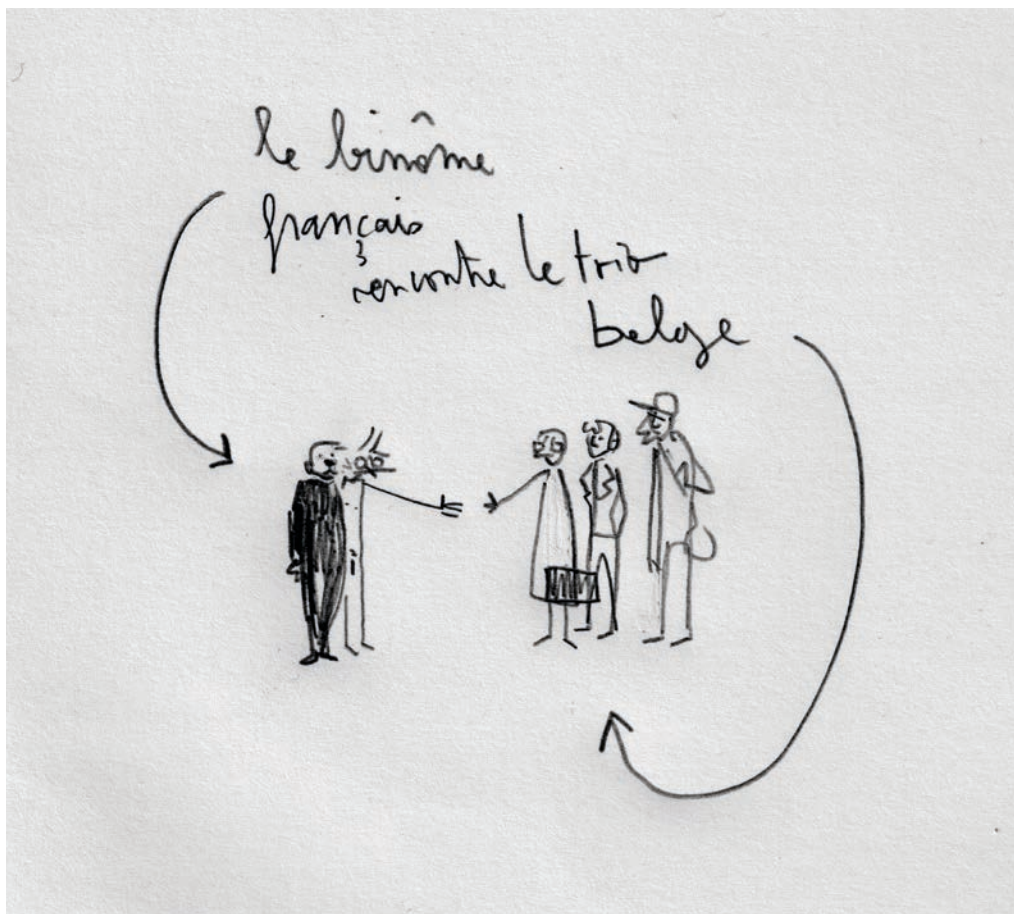 le binôme
français
rencontre le trio
belge